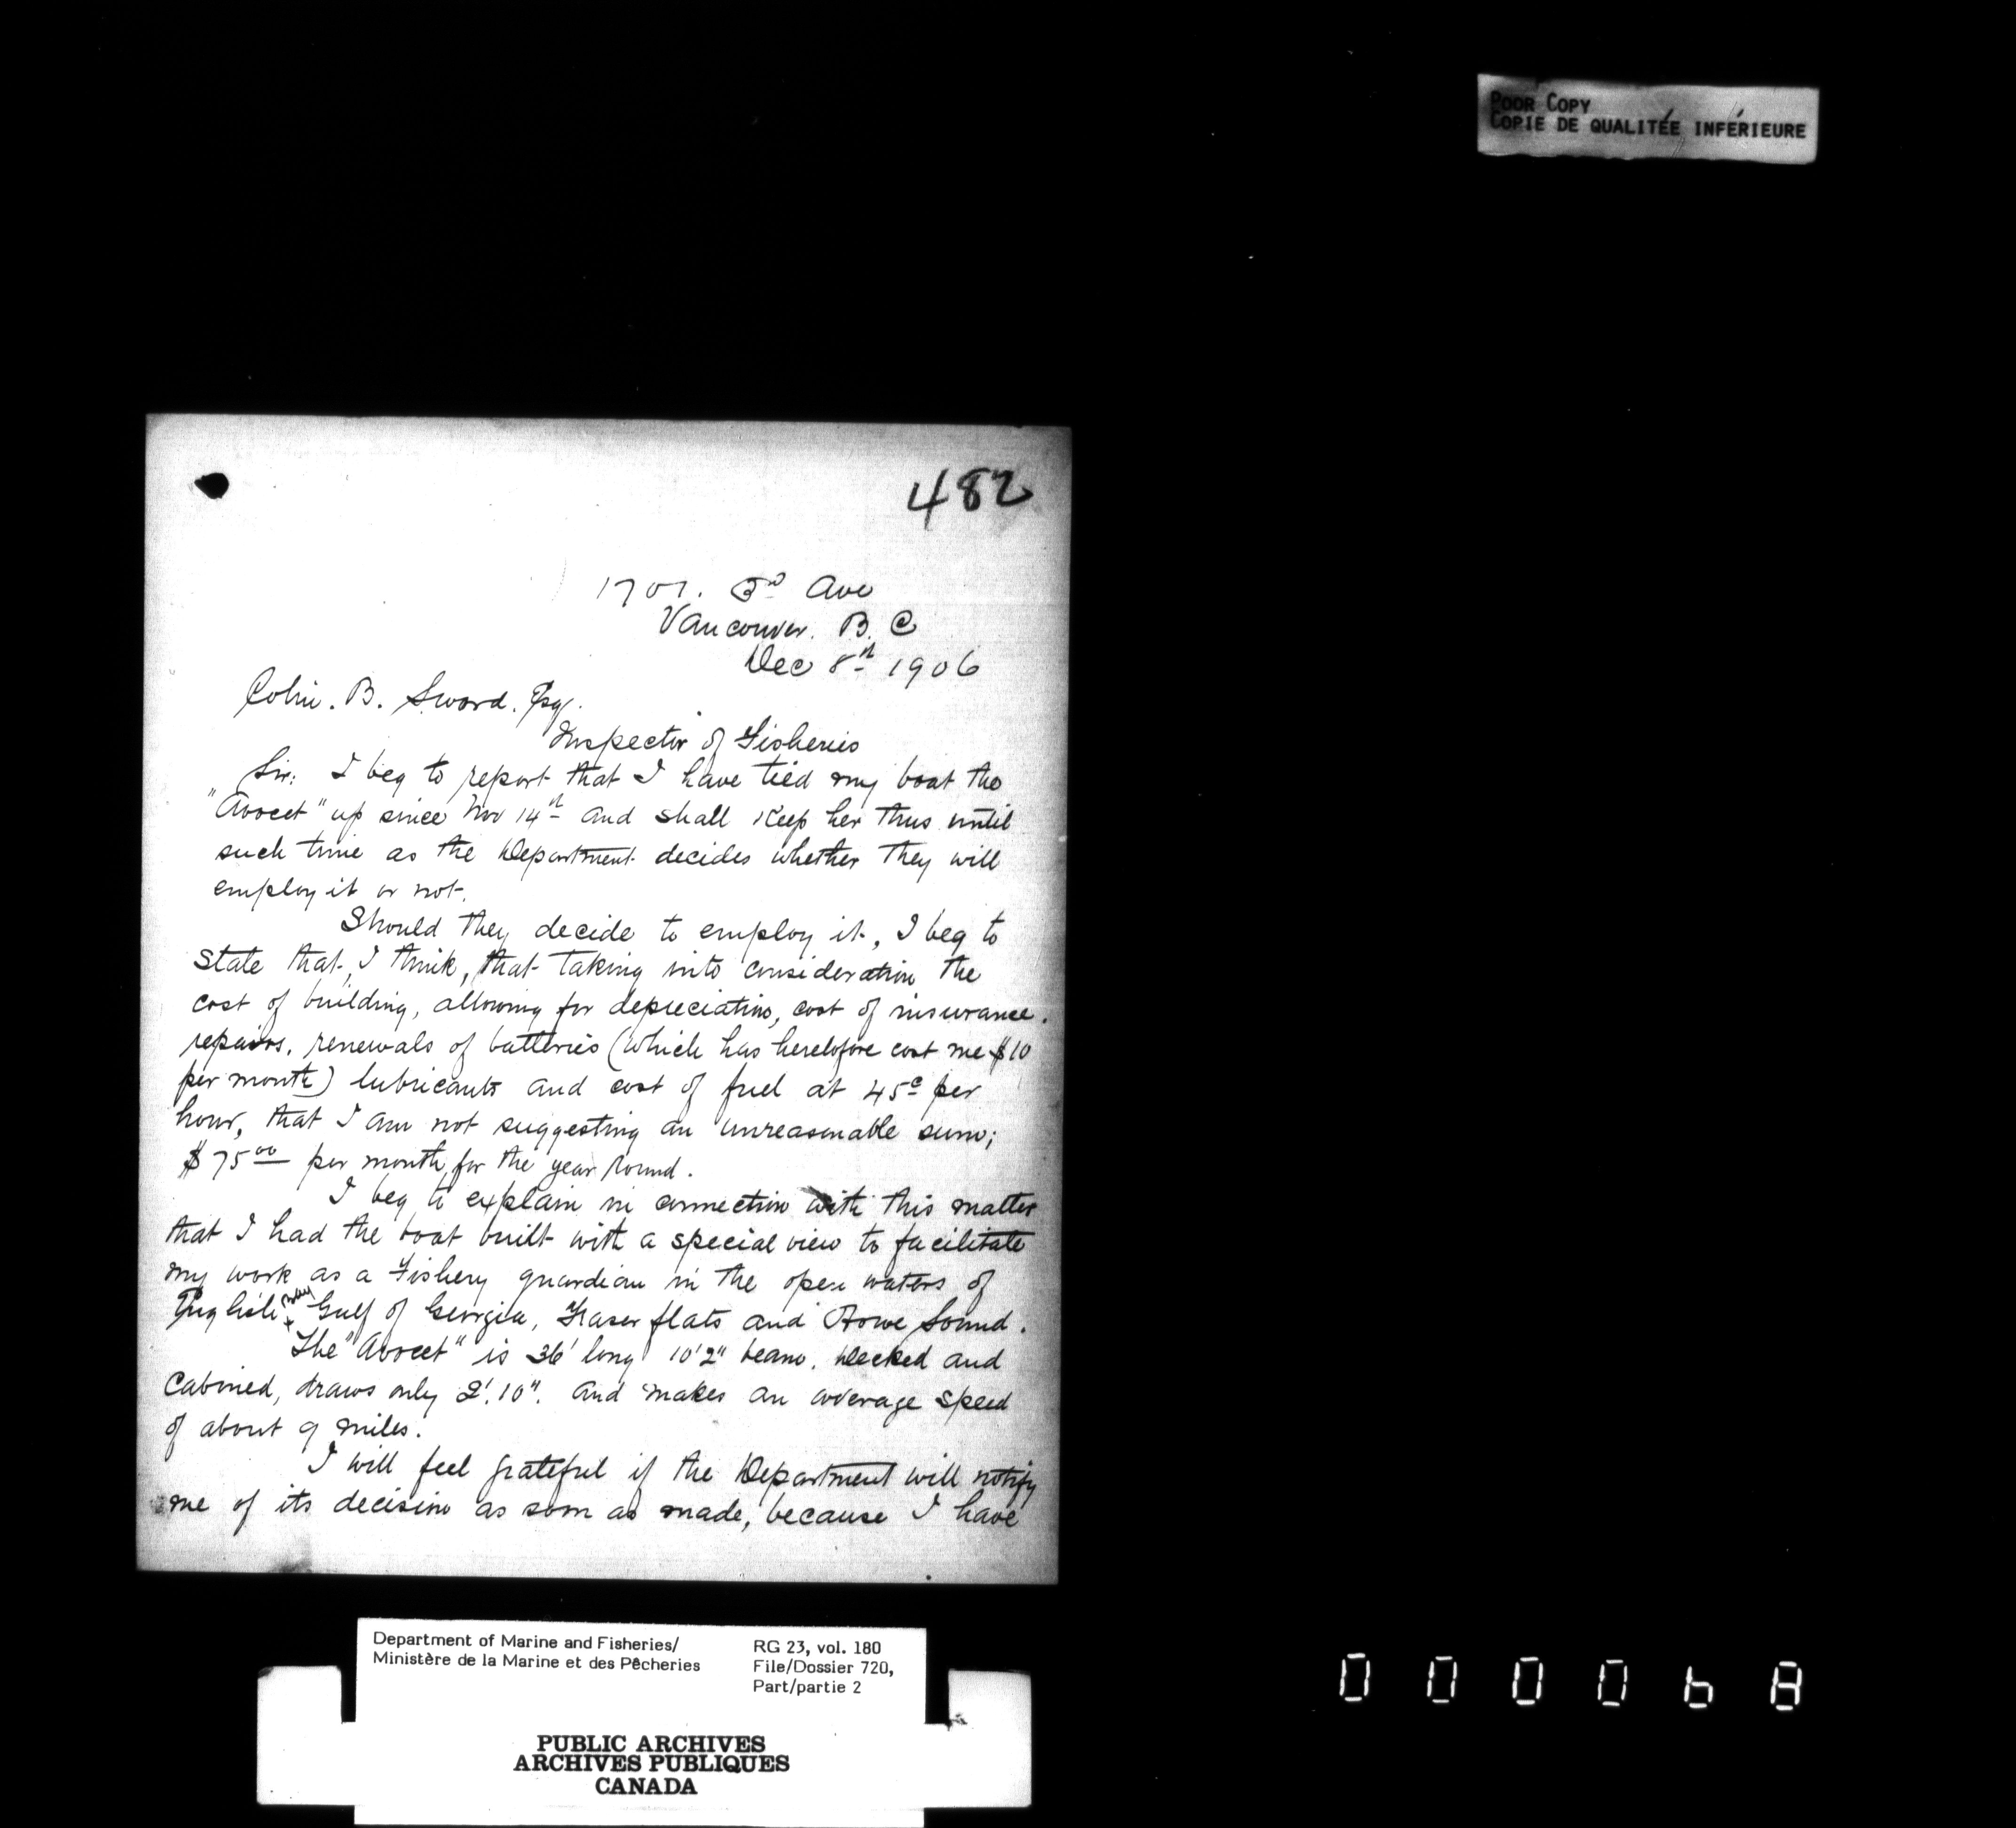 POOR COPY
COPIE DE QUALITÉE INFÉRIEURE
482
1701. 3rd Ave
Vancouver. B. C
Dec 8th 1906
Colin. B. Sword. Esq.
Inspector of Fisheries
Sir: I beg to report that I have tied my boat the
"Avocet" up since Nov 14th and shall keep her thus until
such time as the Department decides whether they will
employ it or not.
Should they decide to employ it, I beg to
state that, I think, that taking into consideration the
cost of building, allowing for depreciation, cost of insurance.
repairs. renewals of batteries (which has heretofore cost me $10
per month) lubricants and cost of fuel at 45c per
hour, that I am not suggesting an unreasonable sum;
$75.00 per month, for the year round.
I beg to explain in connection with this matter
that I had the boat built with a special view to facilitate
my work as a Fishery guardian in the open waters of
English Bay + Gulf of Georgia, Fraser flats and Howe Sound.
The "Avocet" is 36' long 10'2" beam. decked and
Cabined, draws only 2'.10". and makes an average speed
of about 9 miles.
I will feel grateful if the Department will notify
me of its decision as soon as made, because I have
Department of Marine and Fisheries/
Ministère de la Marine et des Pêcheries
RG 23, vol. 180
File/Dossier 720,
Part/partie 2
PUBLIC ARCHIVES
ARCHIVES PUBLIQUES
CANADA
000068